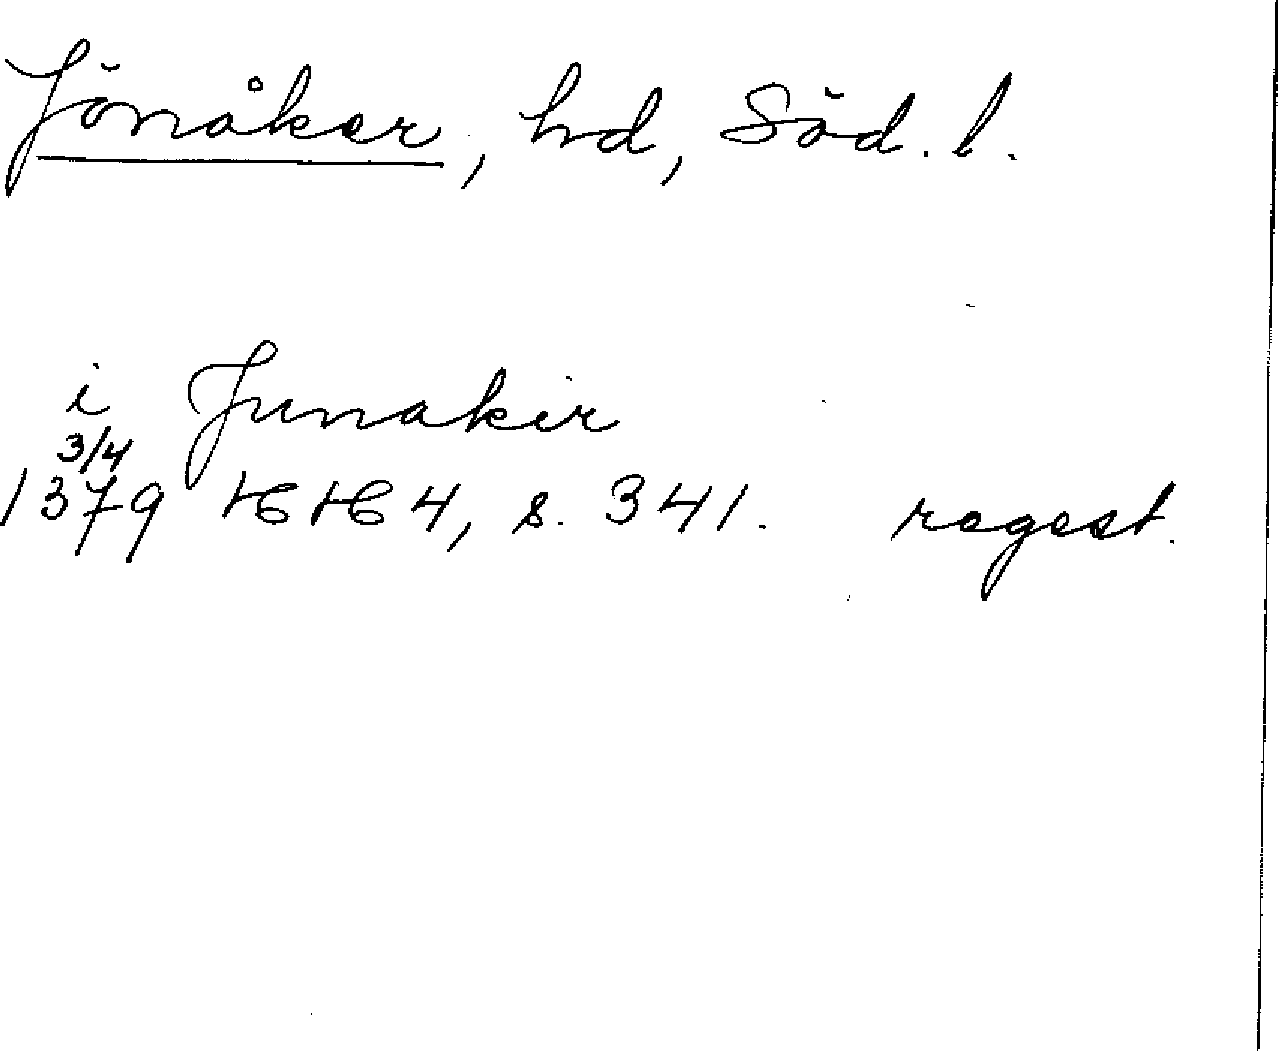 Jönåker, hd, Söd. l.
i Junakir
3/4
1379 HH 4, s. 341. regest.